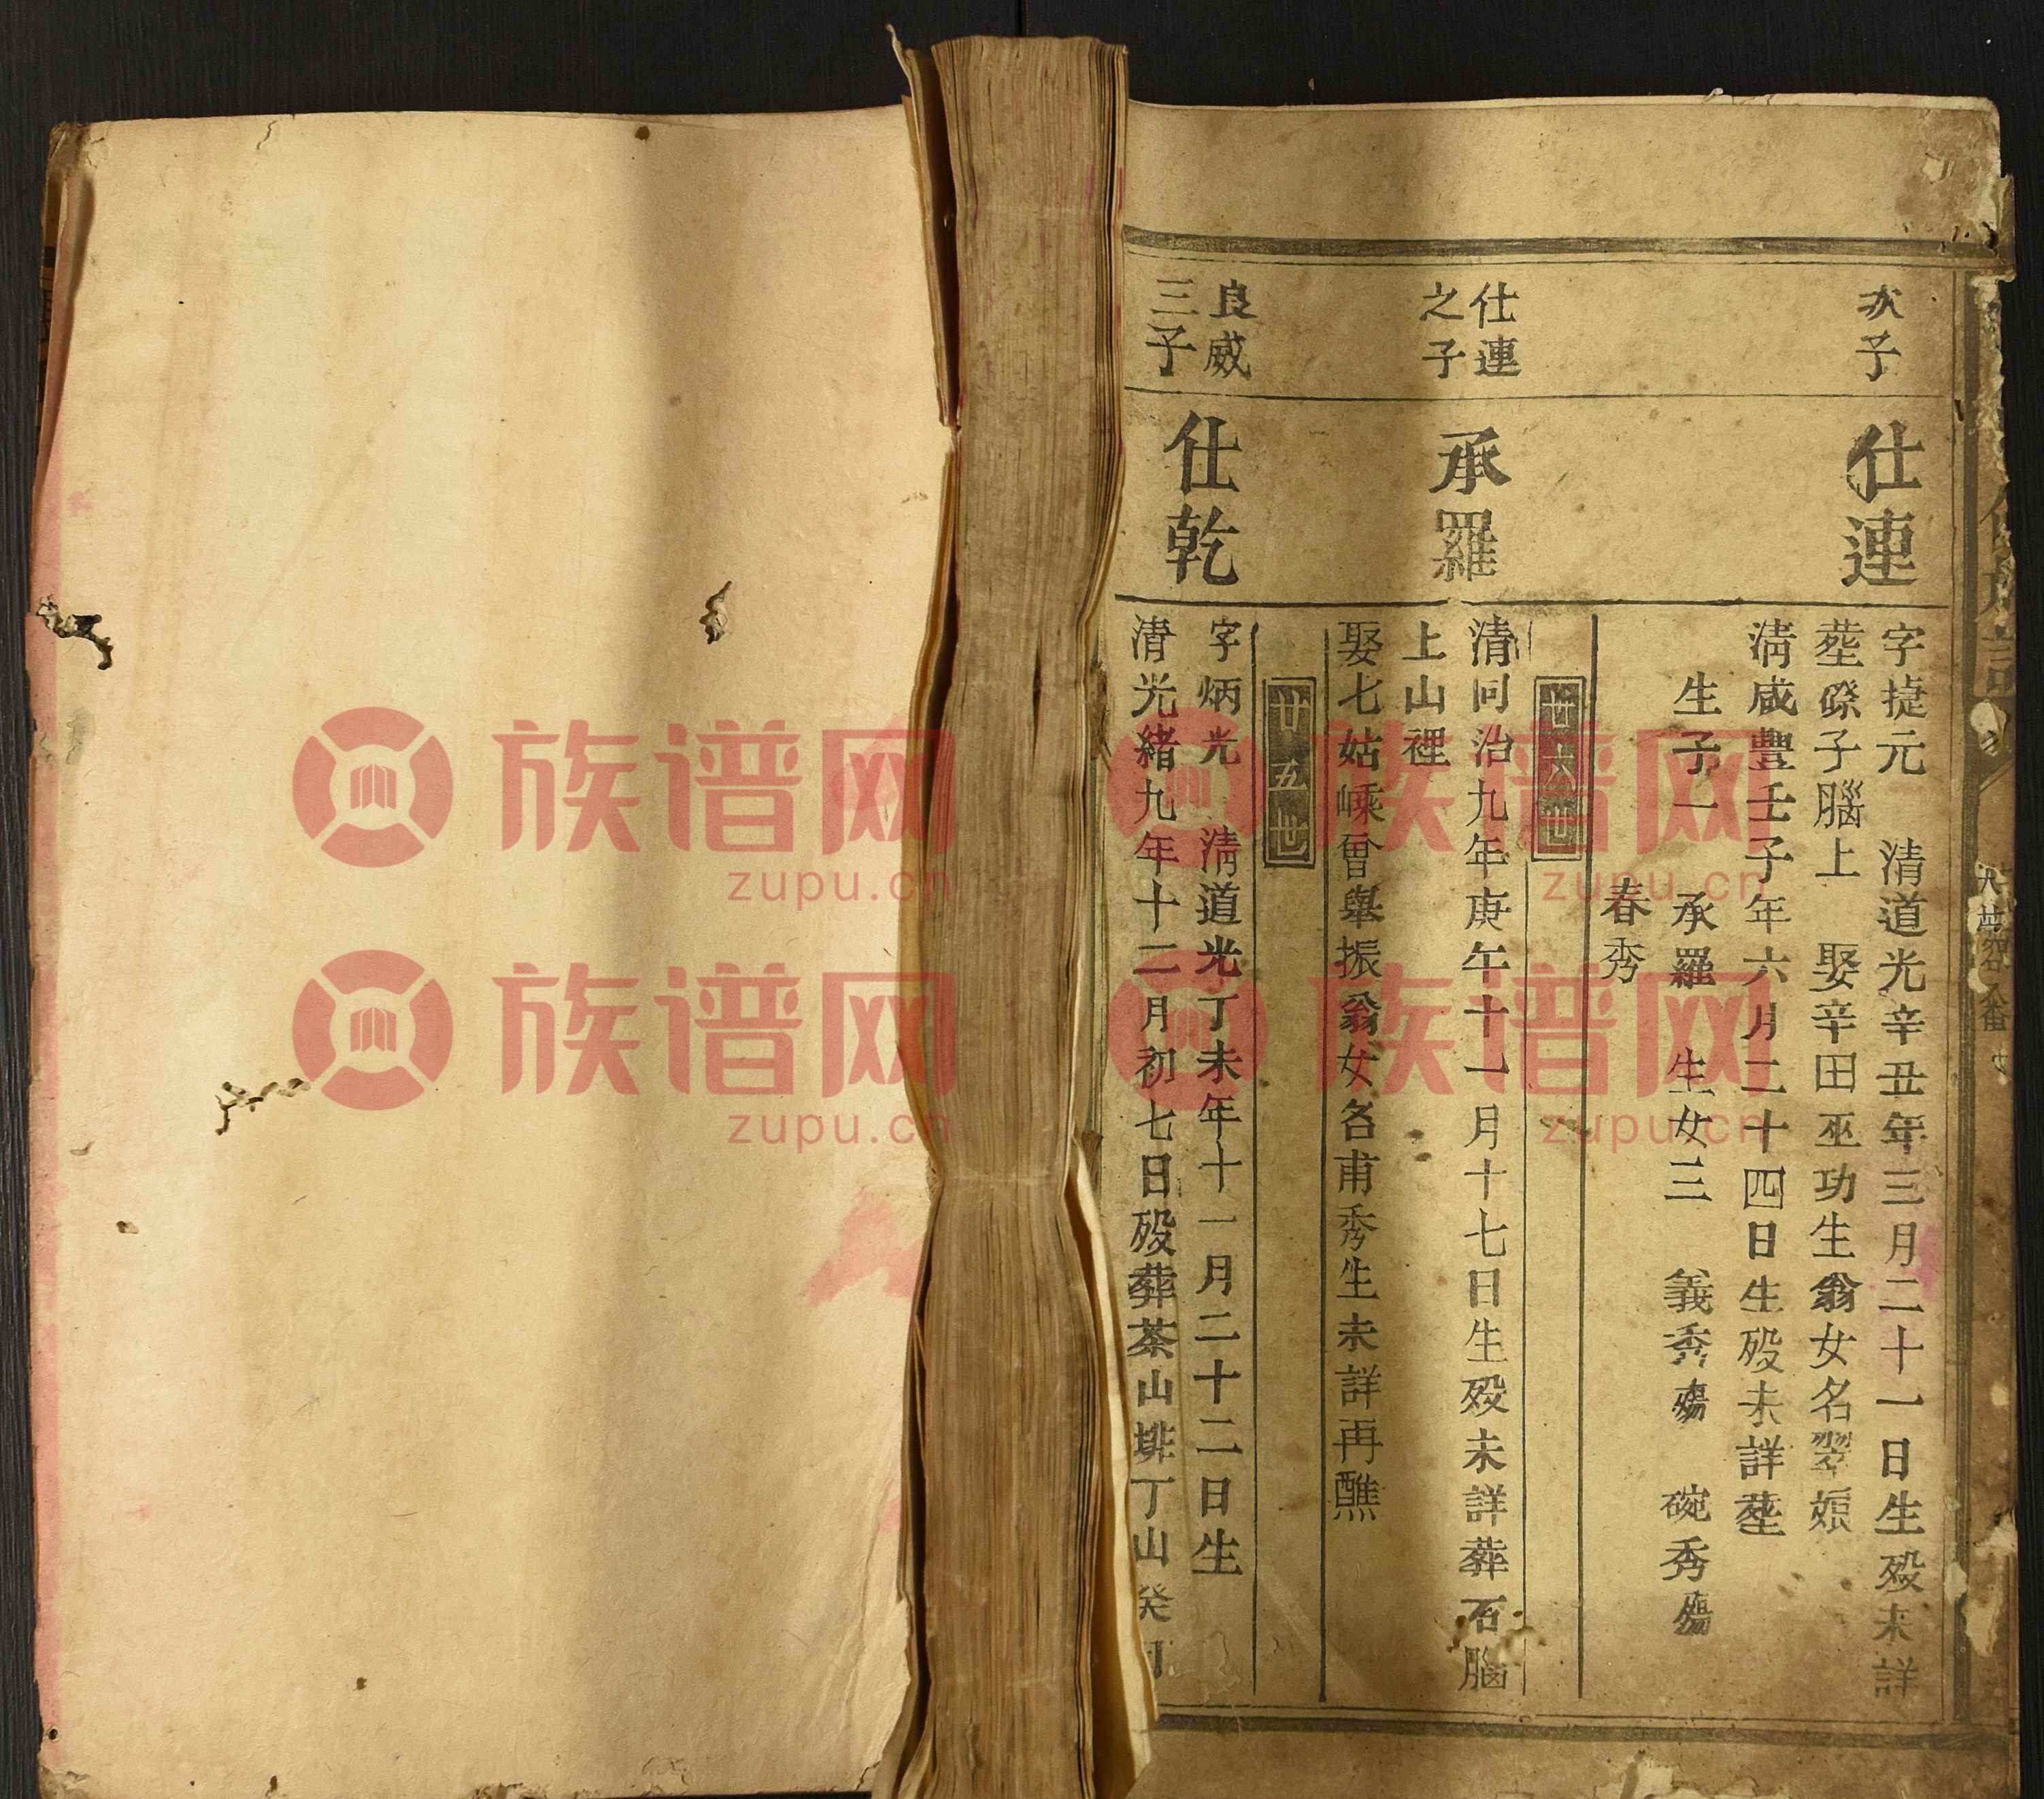 次子
仕連
字捷元 清道光辛丑年三月二十一日生殁未詳
塟磜子腦上 娶辛田巫功生翁女名翠娘
清咸豐壬子年六月二十四日生殁未詳塟
生子一 承羅 生女三 義秀殤 碗秀殤
春秀
廿六世
仕連
之子
承羅
清同治九年庚午十一月十七日生殁未詳葬石腦
上山裡
娶七姑嵊曾舉振翁女名甫秀生未詳再醮
廿五世
良威
三子
仕乾
字炳光 清道光丁未年十一月二十二日生
清光緒九年十二月初七日殁葬茶山排丁山癸
族谱网
zupu.cn
族谱网
zupu.cn
族谱网
zupu.cn
族谱网
zupu.cn